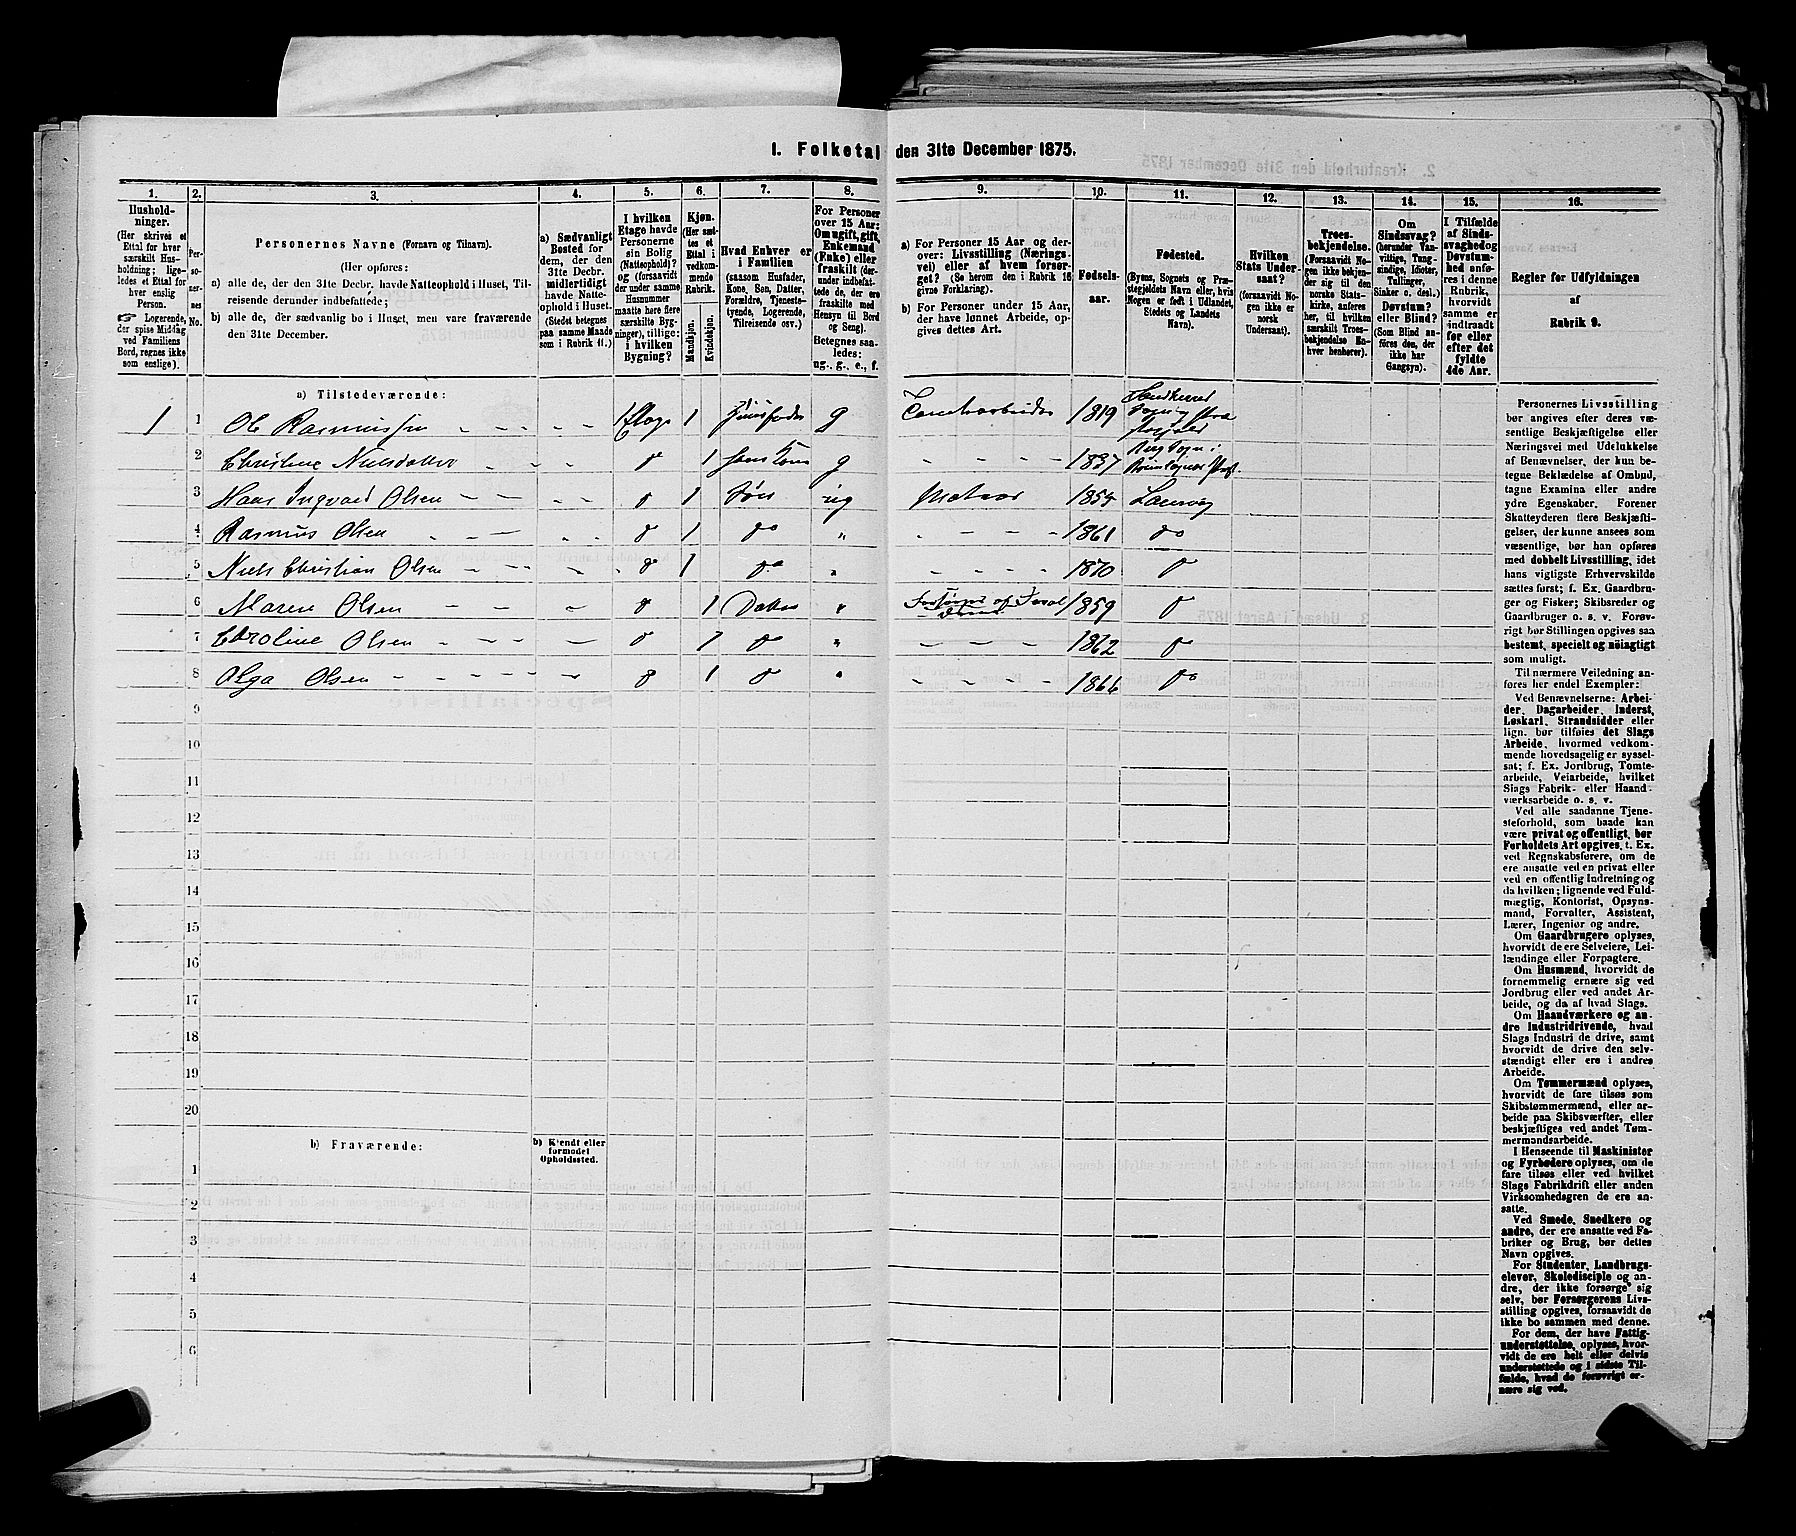 I. Folketal den 31te December 1875.
1.
Husholdninger.
(Her skrives et
Ettal for hver
særskilt Husholdning;
ligeledes et Ettal for
hver enslig
Person.
☞ Logerende,
der spise Middag
ved Familiens
Bord, regnes ikke
som enslige).
2.
Personernes
No.
3.
Personernes Navne (Fornavn og Tilnavn).
(Her opføres:
a) alle de, der den 31te Decbr. havde Natteophold i Huset, Tilreisende
derunder indbefattede;
b) alle de, der sædvanlig bo i Huset, men vare fraværende
den 31te December.
4.
a) Sædvanligt
Bosted for
dem, der den
31te Decbr.
midlertidigt
havde Natteophold
i Huset.
(Stedet betegnes
paa samme Maade
som i Rubrik 11.)
5.
I hvilken
Etage havde
Personerne
sin Bolig
(Natteophold)?
og (forsaavidt
der under samme
Husnummer
maatte høre flere
særskilte Bygninger),
tillige:
i hvilken
Bygning?
6.
Kjøn.
(Her sættes
et
Ettal i
vedkommende
Rubrik.
Mandkjøn.
Kvindekjøn.
7.
Hvad Enhver er
i Familien
(saasom Husfader,
Kone, Søn, Datter,
Forældre, Tjenestetyende,
Logerende,
Tilreisende osv.)
8.
For Personer
over 15 Aar:
Om ugift, gift,
Enkemand
(Enke) eller
fraskilt (derunder
indbefattede
de, der ere
fraskilte med
Hensyn til Bord
og Seng).
Betegnes saaledes:
ug., g., e., f.
9.
a) For Personer 15 Aar og derover:
Livsstilling (Næringsvei)
eller af hvem forsørget?
(Se herom den i Rubrik 16
givne Forklaring).
b) For Personer under 15 Aar,
der have lønnet Arbeide, opgives
dettes Art.
10.
Fødselsaar.
11.
Fødested.
(Byens, Sognets og Præstegjeldets
Navn eller, hvis
Nogen er født i Udlandet,
Stedets og Landets
Navn).
12.
Hvilken
Stats Undersaat?
(forsaavidt Nogen
ikke er
norsk
Undersaat).
13.
Troesbekjendelse.
(Forsaavidt Nogen
ikke bekjender
sig til den
norske Statskirke,
anføres
her, til hvilken
særskilt Troesbekjendelse
Enhver
henhører).
14.
Om
Sindssvag?
(herunder Vanvittige,
Tungsindige,
Idioter,
Tullinger,
Sinker o. desl.)
Døvstum?
eller Blind?
(Som Blind anføres
den, der
ikke har
Gangsyn).
15.
I Tilfælde
af Sindssvaghed
og
Døvstumhed
anføres
i denne
Rubrik,
hvorvidt
samme er
indtraadt
før eller
efter det
fyldte
4de Aar.
16.
Regler for Udfyldningen
af
Rubrik 9.
a) Tilstedeværende:
1 1 Ole Rasmussen 1 Etage 1 Huusfader g Tomtearbeider 1819
2 Christine Nielsdatter - - - do 1 hans Kone g - - - - 1837
3 Hans Ingvald Olsen - - - do 1 Søn ug Matros 1854 Laurvig
4 Rasmus Olsen - - - do 1 do " - - - - 1861 do
5 Niels Christian Olsen - - - do 1 do " - - - 1870 do
6 Maren Olsen - - - do 1 Datter " Forsørges af Forældrene 1859 do
7 Caroline Olsen - - - do 1 do " - - - 1862 do
8 Olga Olsen - - - do 1 do " - - - 1866 do
9
10
11
12
13
14
15
16
17
18
19
20
b) Fraværende:
b) Kjendt eller
formodet
Opholdssted.
1
2
3
4
5
6
Personernes Livsstilling
bør angives efter deres væsentlige
Beskjæftigelse eller
Næringsvei med Udelukkelse
af Benævnelser, der kun betegne
Beklædelse af Ombud,
tagne Examina eller andre
ydre Egenskaber. Forener
Skatteyderen flere Beskjæftigelser,
der kunne ansees som
væsentlige, bør han opføres
med dobbelt Livsstilling, idet
hans vigtigste Erhvervskilde
sættes først; f. Ex. Gaardbruger
og Fisker; Skibsreder og
Gaardbruger o. s. v. Forøvrigt
bør Stillingen opgives saa
bestemt, specielt og nöiagtigt
som muligt.
Til nærmere Veiledning anføres
her endel Exempler:
Ved Benævnelserne: Arbeider,
Dagarbeider, Inderst,
Løskarl, Strandsidder eller
lign. bør tilføies det Slags
Arbeide, hvormed vedkommende
hovedsagelig er sysselsat;
f. Ex. Jordbrug, Tømtearbeide,
Veiarbeide, hvilket
Slags Fabrik- eller Haandværksarbeide
o. s. v.
Ved alle saadanne Tjenesteforhold,
som baade kan
være privat og offentligt, bør
Forholdets Art opgives, t. Ex.
ved Regnskabsførere, om de
ere ansatte ved en privat eller
ved en offentlig Indretning og
da hvilken; lignende ved Fuldmægtig,
Kontorist, Opsynsmand,
Forvalter, Assistent,
Lærer, Ingeniør og andre.
Om Gaardbrugere oplyses,
hvorvidt de ere Selveiere, Leilændinge
eller Forpagtere.
Om Husmænd, hvorvidt de
fornemmelig ernære sig ved
Jordbrug eller ved andet Arbeide,
og da af hvad Slags.
Om Haandværkere og andre
Industridrivende, hvad
Slags Industri de drive, samt
hvorvidt de drive den selvstændigt
eller ere i andres
Arbeide.
Om Tømmermænd oplyses,
hvorvidt de fare tilsøs som
Skibstømmermænd, eller arbeide
paa Skibsværfter, eller
beskjæftiges ved andet Tømmermandsarbeide.
I Henseende til Maskinister
og Fyrbødere oplyses, om de
fare tilsøs eller ved hvilket
Slags Fabrikdrift eller anden
Virksomhedsgren de ere ansatte.
Ved Smede, Snedkere og
andre, der ere ansatte ved Fabriker
og Brug, bør dettes
Navn opgives.
For Studenter, Landbrugselever,
Skoledisciple og andre,
der ikke forsørge sig
selv, bør Forsørgerens Livsstilling
opgives, forsaavidt de
ikke bo sammen med denne.
For dem, der have Fattigunderstøttelse,
oplyses, hvorvidt
de ere helt eller delvis
understøttede og i sidste Tilfælde,
hvad de forøvrigt ernære
sig ved.